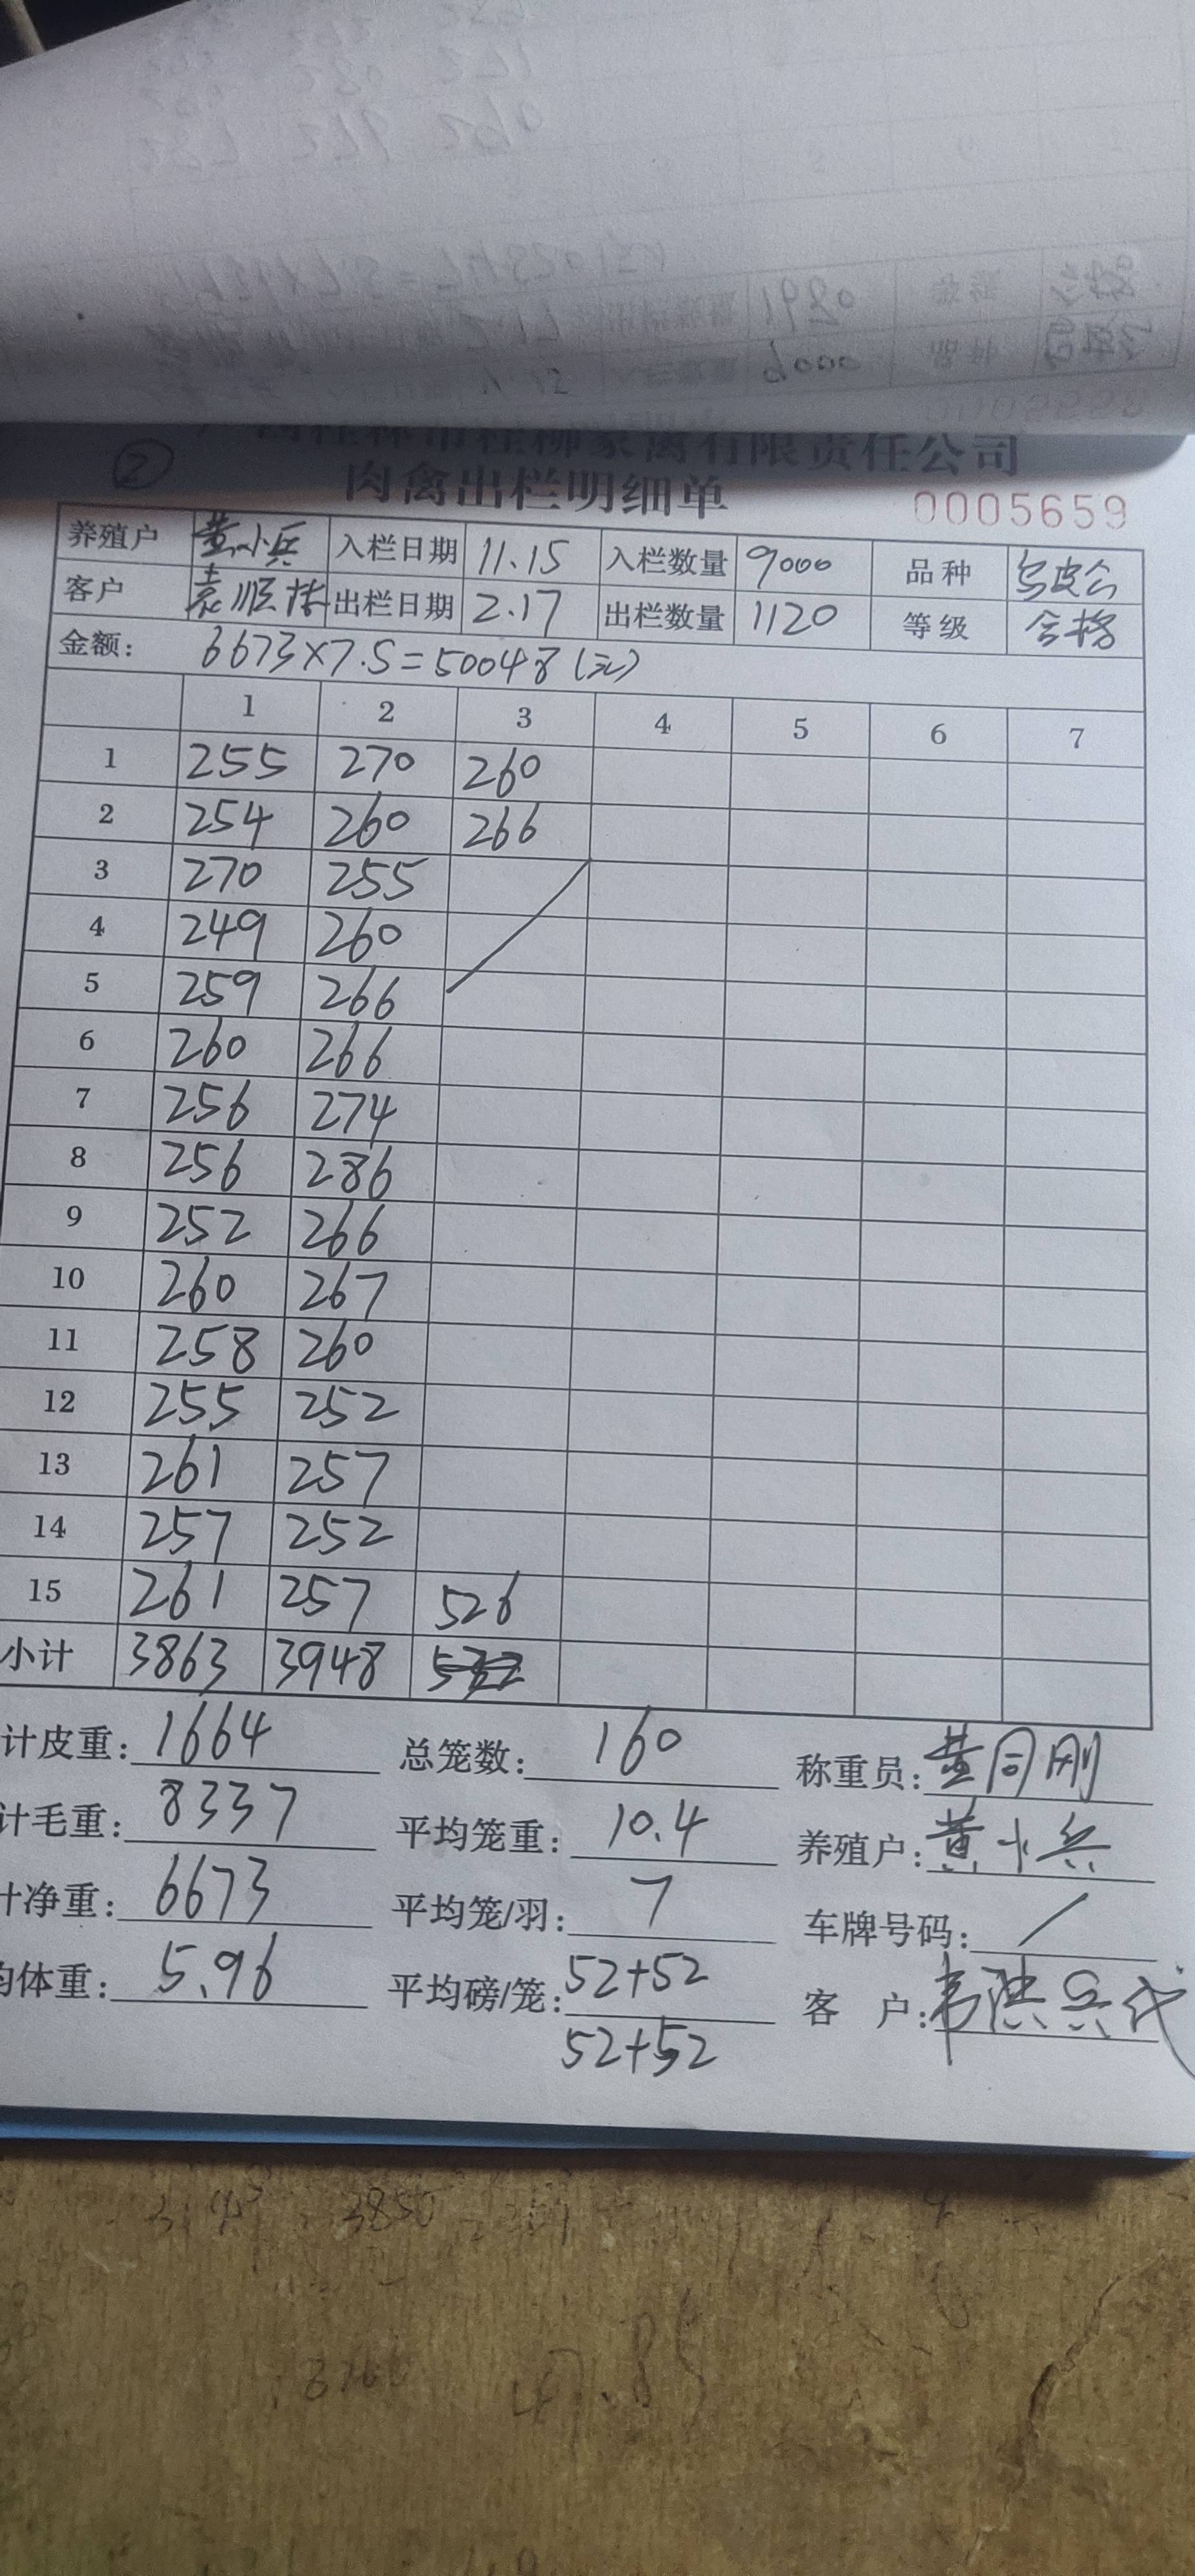 ②
桂林市桂柳家禽有限责任公司
肉禽出栏明细单 0005659
养殖户 黄小兵 入栏日期 11.15 入栏数量 9000 品种 乌皮公
客户 袁顺 出栏日期 2.17 出栏数量 1120 等级 合格
金额: 6673×7.5=50048(元)
1 2 3 4 5 6 7
1 255 270 260
2 254 260 266
3 270 255
4 249 260
5 259 266
6 260 266
7 256 274
8 256 286
9 252 266
10 260 267
11 258 260
12 255 252
13 261 257
14 257 252
15 261 257 526
小计 3863 3948 532
计皮重: 1664 总笼数: 160 称重员: 黄同刚
计毛重: 8337 平均笼重: 10.4 养殖户: 黄小兵
计净重: 6673 平均笼/羽: 7 车牌号码: /
均体重: 5.96 平均磅/笼: 52+52 客 户: 韦洪兵代
52+52